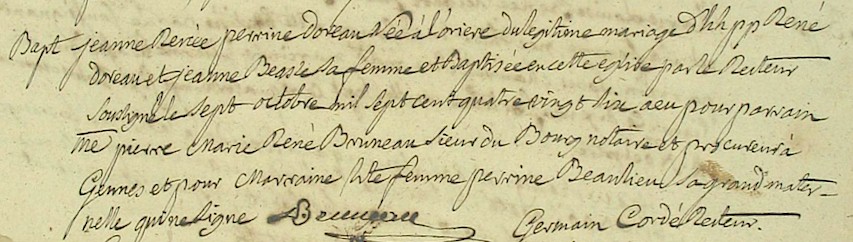 Bapt jeanne Renée perrine doreau Née à l'oriere du legitime mariage d'hh pp René
doreau et jeanne Beasse sa femme et Baptisée en cette eglise par le Recteur
soussigné le sept octobre mil sept cent quatre vingt six a eu pour parrain
me pierre Marie René Bruneau sieur du Bourg notaire et procureur à
Gennes et pour Marraine hte femme perrine Beaulieu sa grand mater-
nelle qui ne signe Bruneau Germain Cordé Recteur.